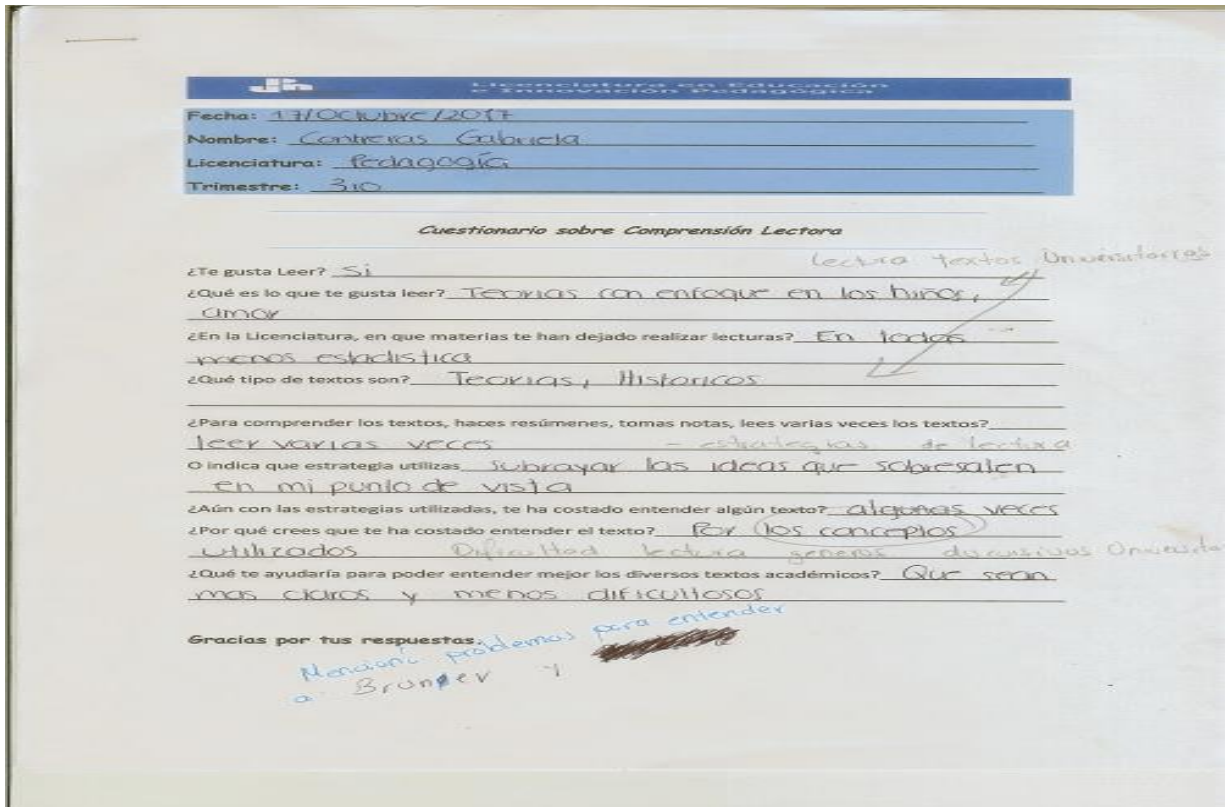 Licenciatura en Educación
e Innovación Pedagógica
Fecha: 17/Octubre/2017
Nombre: Contreras Gabriela
Licenciatura: Pedagogía
Trimestre: 3ro
Cuestionario sobre Comprensión Lectora
lectura textos Universitarios
¿Te gusta Leer? Si
¿Qué es lo que te gusta leer? Teorias con enfoque en los niños,
amor
¿En la Licenciatura, en que materias te han dejado realizar lecturas? En todas
menos estadistica
¿Qué tipo de textos son? Teorias, Historicos
¿Para comprender los textos, haces resúmenes, tomas notas, lees varias veces los textos?
leer varias veces - estrategias de lectura
O indica que estrategia utilizas subrayar las ideas que sobresalen
en mi punto de vista
¿Aún con las estrategias utilizadas, te ha costado entender algún texto? algunas veces
¿Por qué crees que te ha costado entender el texto? Por los conceptos
utilizados Dificultad lectura generos discursivos
¿Qué te ayudaría para poder entender mejor los diversos textos académicos? Que sean
mas claros y menos dificultosos
Gracias por tus respuestas.
Mencionó problemas para entender
a Bruner y